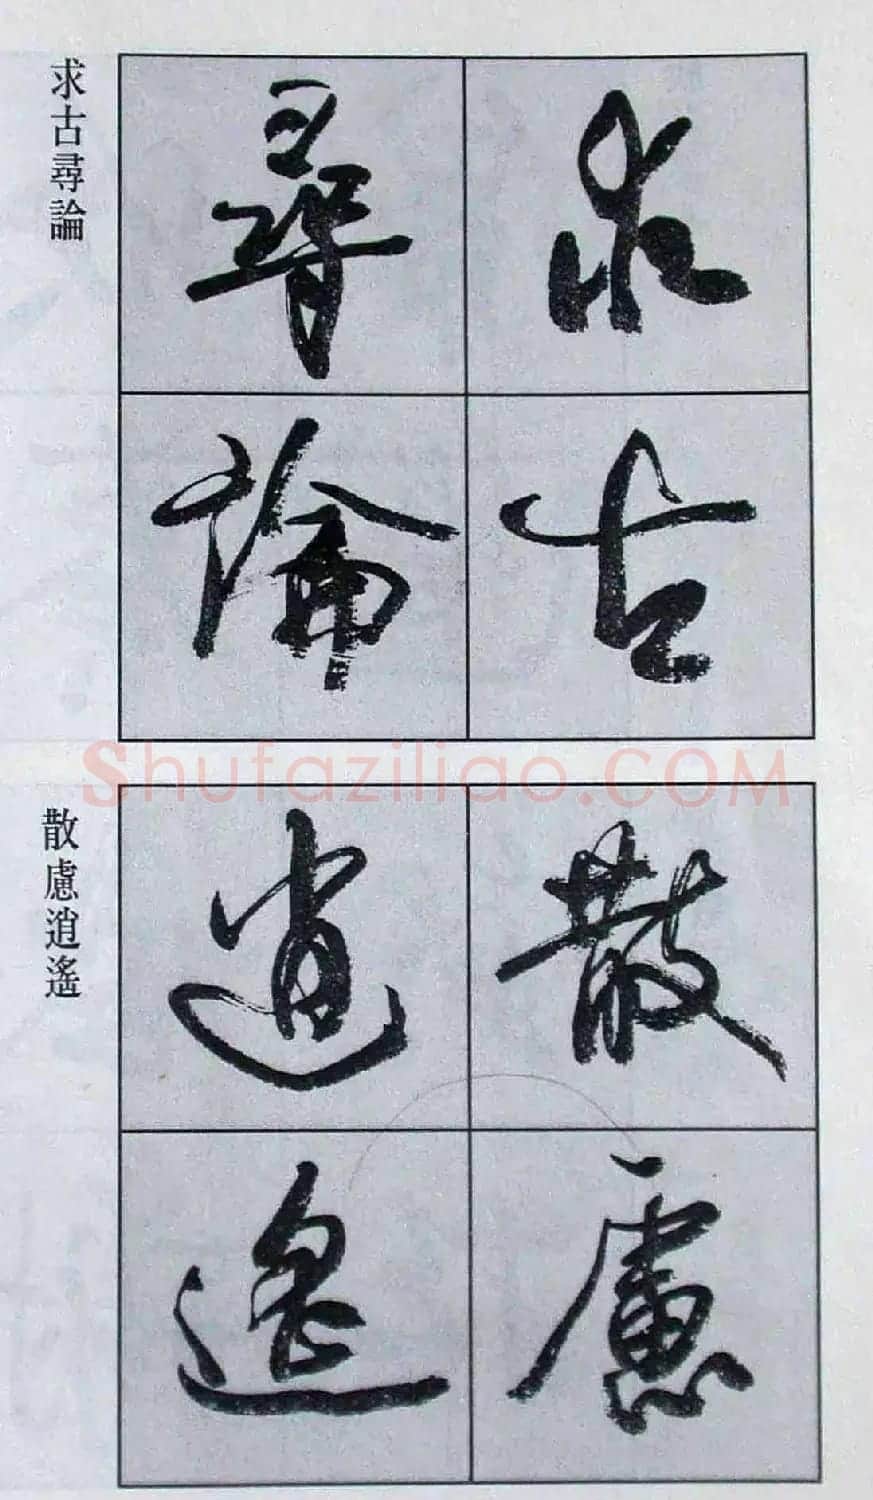 求古
尋論
求古尋論
散慮
逍遙
散慮逍遙
Shufaziliao.COM